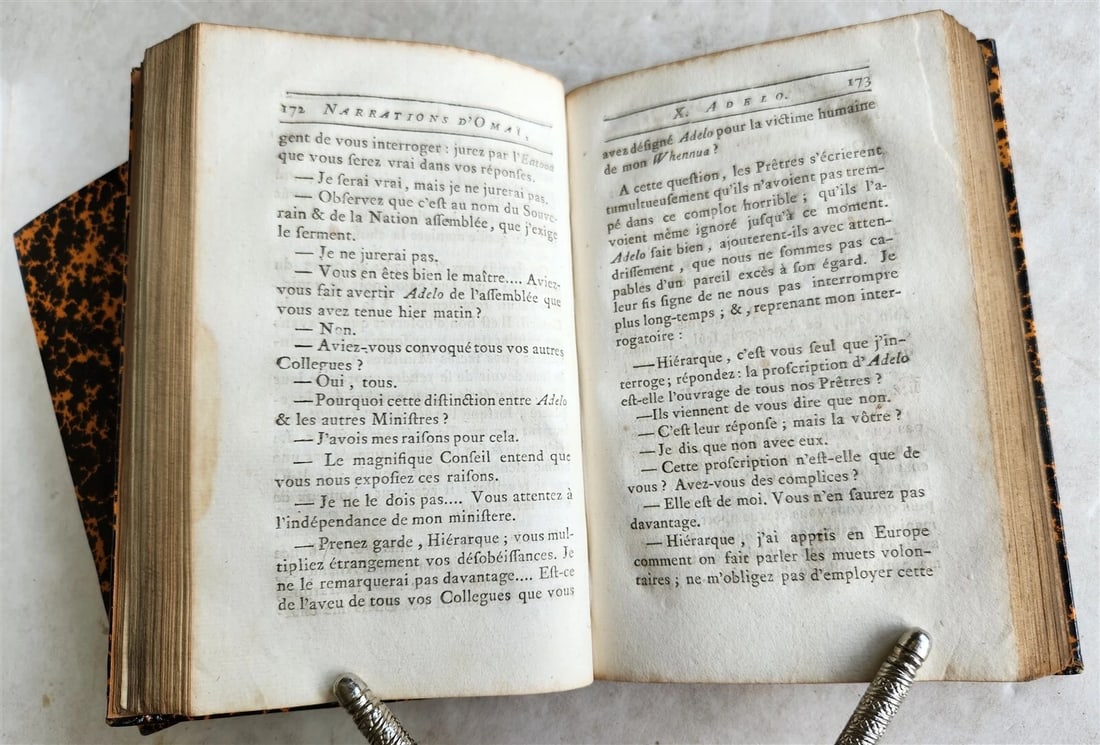 172 NARRATIONS D'OMAI,
gent de vous interroger : jurez par l'Eatooa
que vous ſerez vrai dans vos réponſes.
— Je ſerai vrai, mais je ne jurerai pas.
— Obſervez que c'eſt au nom du Souve-
rain & de la Nation aſſemblée, que j'exige
le ſerment.
— Je ne jurerai pas.
— Vous en êtes bien le maître.... Aviez-
vous fait avertir Adelo de l'aſſemblée que
vous avez tenue hier matin ?
— Non.
— Aviez-vous convoqué tous vos autres
Collegues ?
— Oui, tous.
— Pourquoi cette diſtinction entre Adelo
& les autres Miniſtres ?
— J'avois mes raiſons pour cela.
— Le magnifique Conſeil entend que
vous nous expoſiez ces raiſons.
— Je ne le dois pas.... Vous attentez à
l'indépendance de mon miniſtere.
— Prenez garde, Hiérarque ; vous mul-
tipliez étrangement vos déſobéiſſances. Je
ne le remarquerai pas davantage.... Eſt-ce
de l'aveu de tous vos Collegues que vous
X. ADELO. 173
avez déſigné Adelo pour la victime humaine
de mon Whennua ?
A cette queſtion, les Prêtres s'écrierent
tumultueuſement qu'ils n'avoient pas trem-
pé dans ce complot horrible ; qu'ils l'a-
voient même ignoré juſqu'à ce moment.
Adelo ſait bien, ajouterent-ils avec atten-
driſſement, que nous ne ſommes pas ca-
pables d'un pareil excès à ſon égard. Je
leur fis ſigne de ne nous pas interrompre
plus long-temps ; &, reprenant mon inter-
rogatoire :
— Hiérarque, c'eſt vous ſeul que j'in-
terroge ; répondez : la proſcription d'Adelo
eſt-elle l'ouvrage de tous nos Prêtres ?
— Ils viennent de vous dire que non.
— C'eſt leur réponſe ; mais la vôtre ?
— Je dis que non avec eux.
— Cette proſcription n'eſt-elle que de
vous ? Avez-vous des complices ?
— Elle eſt de moi. Vous n'en ſaurez pas
davantage.
— Hiérarque, j'ai appris en Europe
comment on fait parler les muets volon-
taires ; ne m'obligez pas d'employer cette